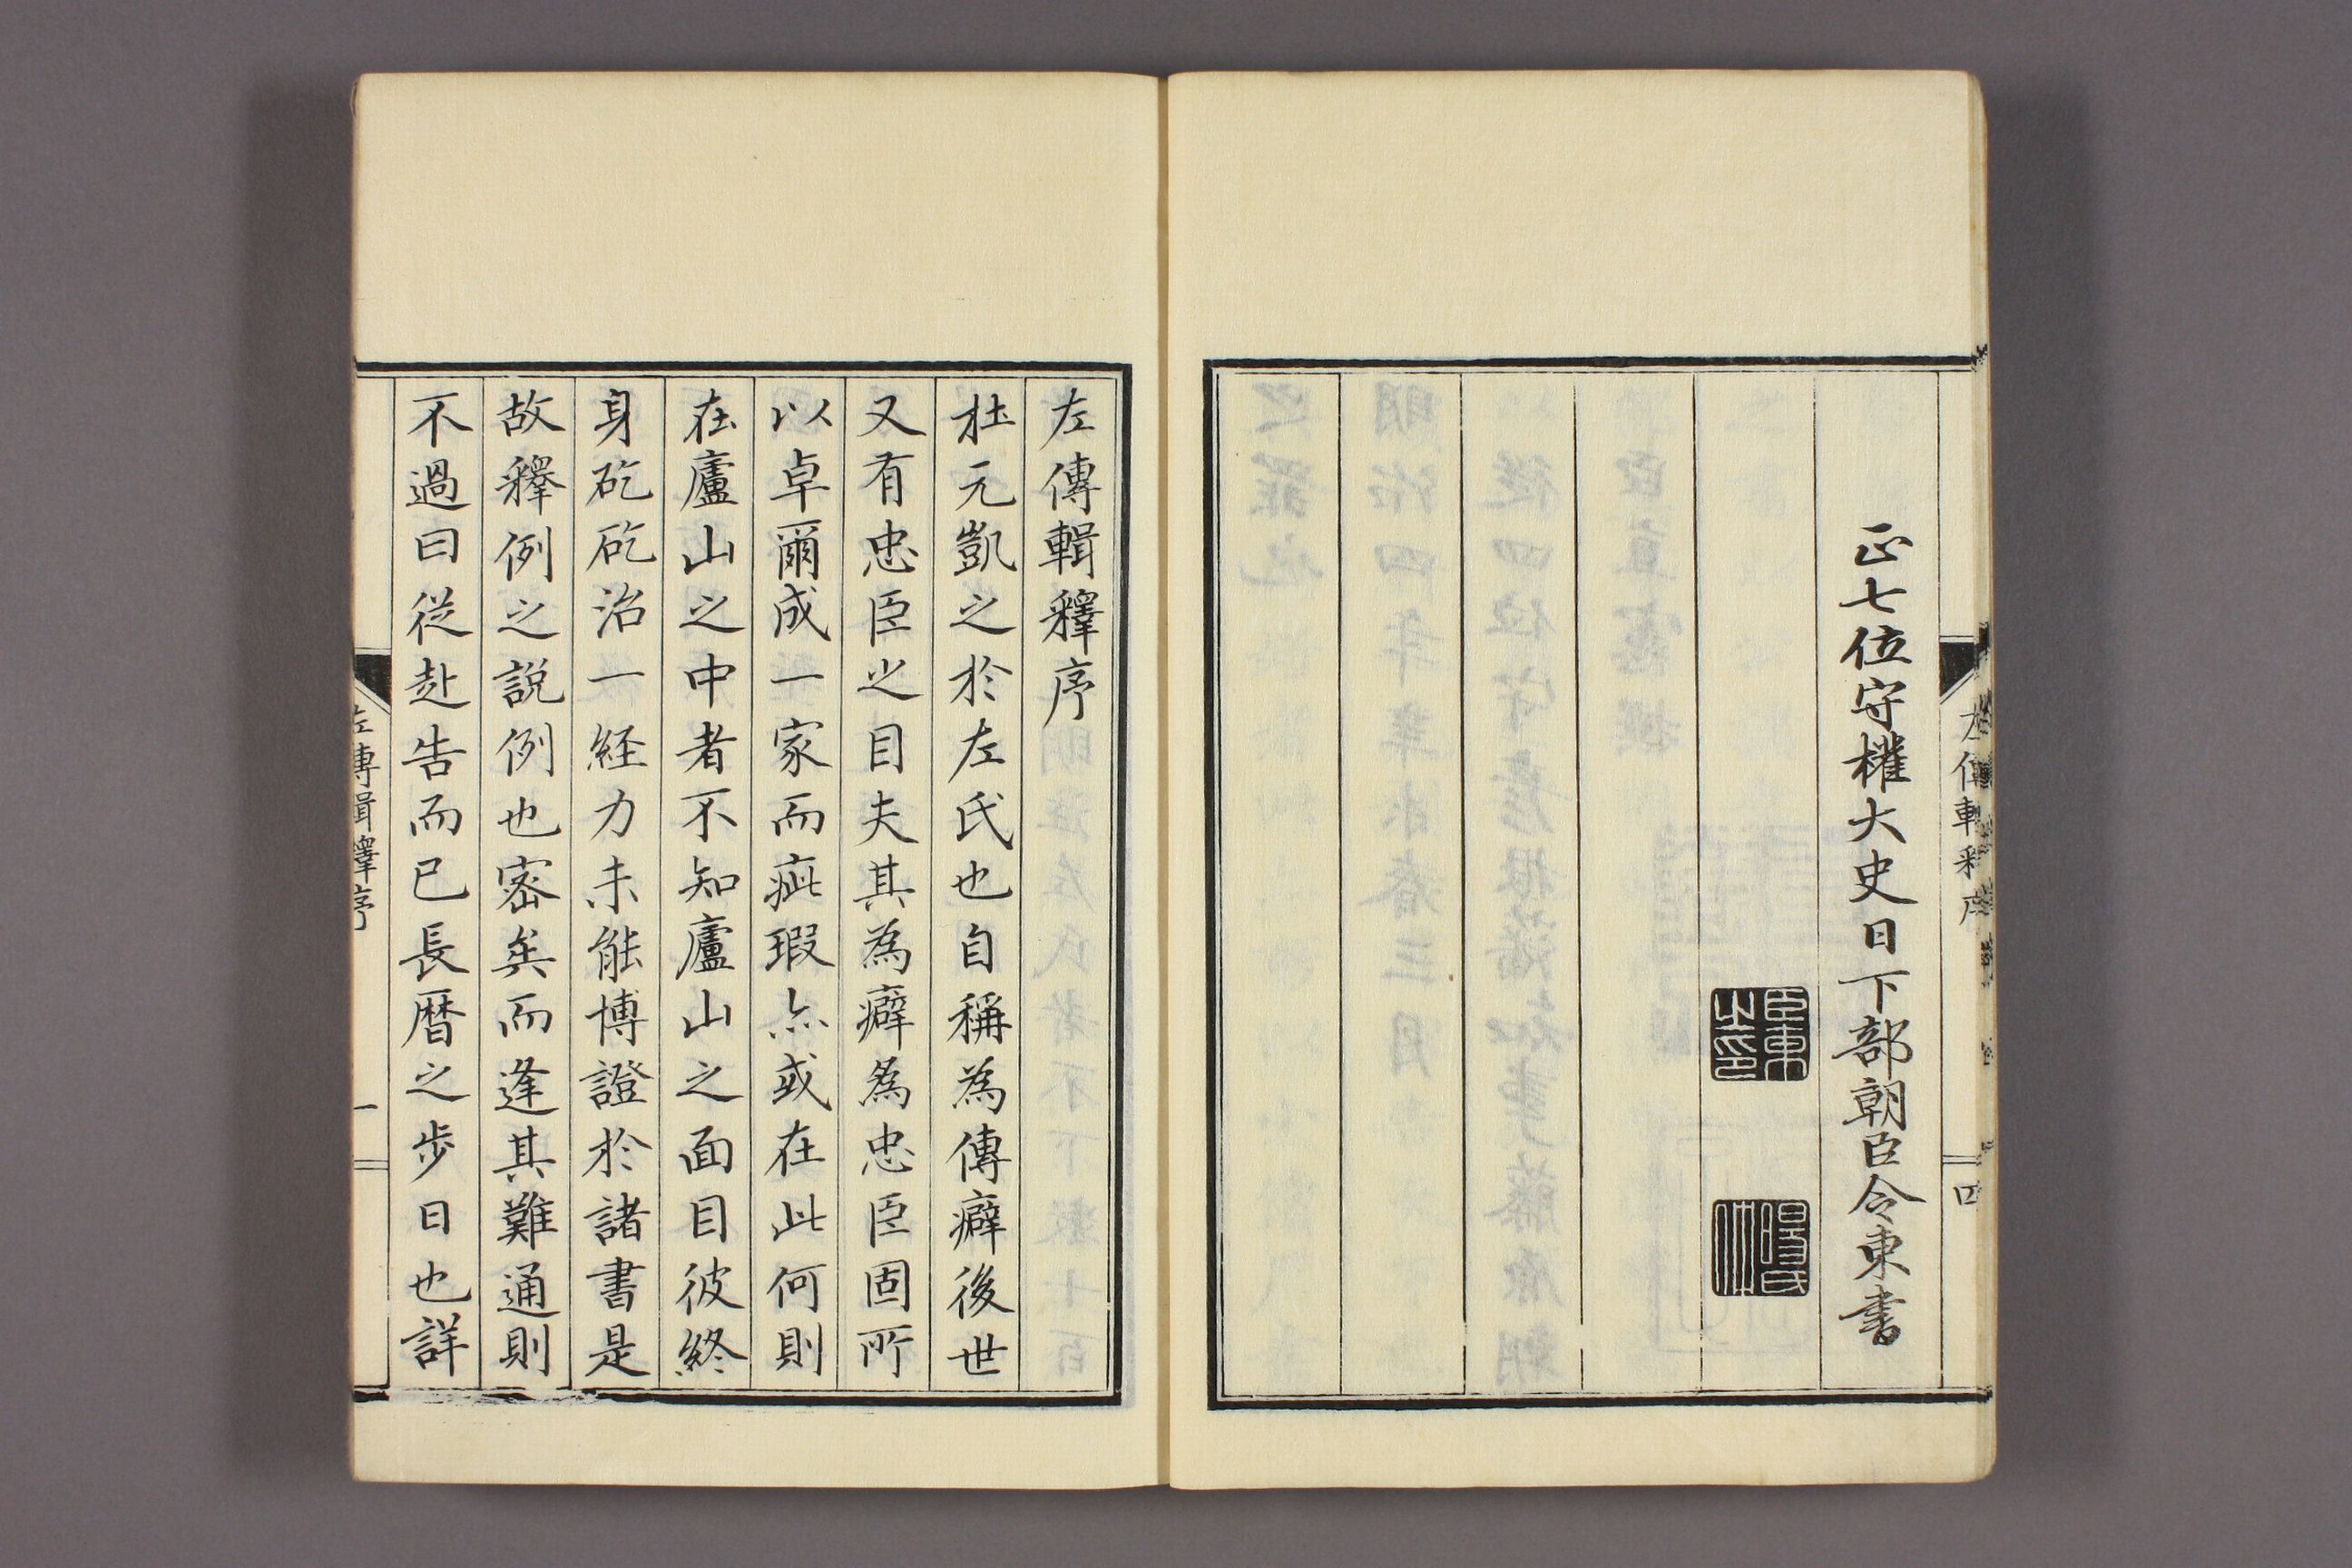 正七位守權大史日下部朝臣令東書
臣東
之印
日昜氏
左傳輯釋序
四
左傳輯釋序
杜元凱之於左氏也自稱為傳癖後世
又有忠臣之目夫其為癖為忠臣固所
以卓爾成一家而疵瑕亦或在此何則
在廬山之中者不知廬山之面目彼終
身矻矻治一経力未能博證於諸書是
故釋例之說例也密矣而逢其難通則
不過曰從赴告而已長暦之步日也詳
左傳輯釋序
一